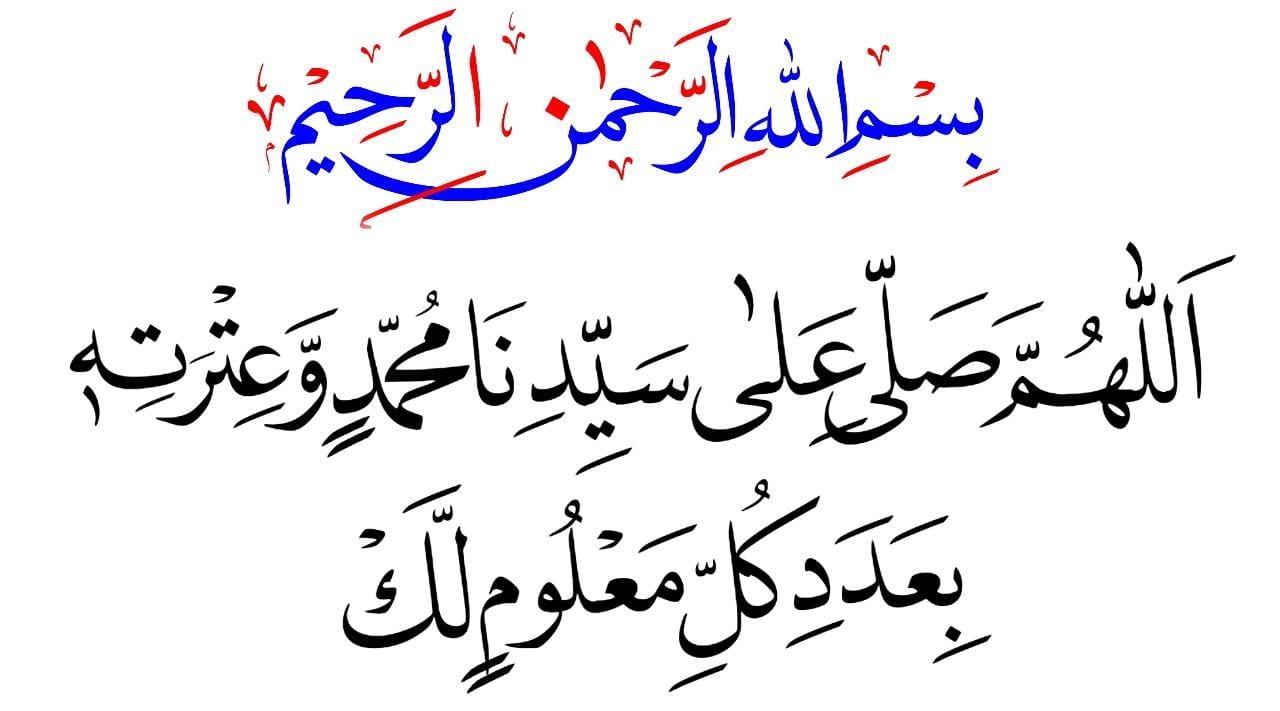 بِسْمِ اللهِ الرَّحْمٰنِ الرَّحِيْمِ
اَللّٰهُمَّ صَلِّی عَلٰی سَيِّدِنَا مُحَمَّدٍ وَّعِتْرَتِهٖ
بِعَدَدِ كُلِّ مَعْلُومٍ لَّكَ